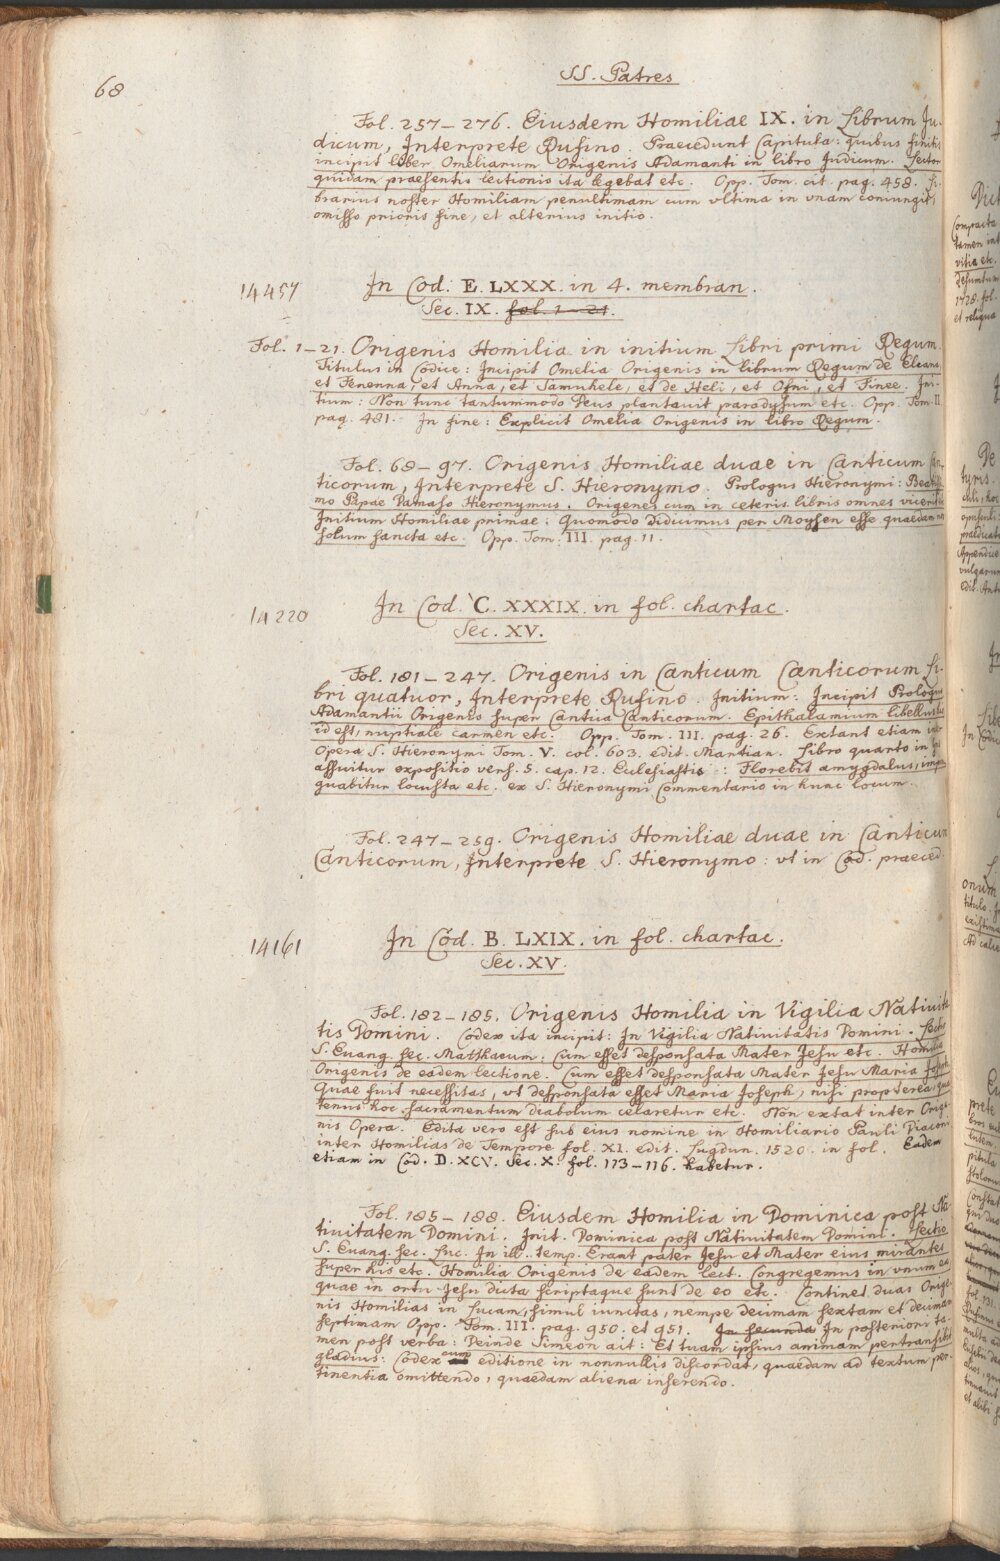 68
SS. Patres
Fol. 257–276. Eiusdem Homiliae IX. in Librum Iu-
dicum, Interprete Rufino. Praecedunt Capitula: quibus finitis
incipit liber Omeliarum Origenis Adamanti in libro Iudicum. Lector
quidam praesentis lectionis ita legebat etc. Opp. Tom. cit. pag. 458. Li-
brarius noster Homiliam penultimam cum vltima in vnam coniungit,
omisso prioris fine, et alterius initio.
14457
In Cod. E. LXXX. in 4. membran.
Sec. IX. fol. 1–21.
Fol. 1–21. Origenis Homilia in initium Libri primi Regum.
Titulus in Codice: Incipit Omelia Origenis in librum Regum de Elcana,
et Fenenna, et Anna, et Samuhele, et de Heli, et Ofni, et Finee. Ini-
tium: Non tunc tantummodo Deus plantauit paradysum etc. Opp. Tom. II.
pag. 481. In fine: Explicit Omelia Origenis in libro Regum.
Fol. 68–97. Origenis Homiliae duae in Canticum Can-
ticorum, Interprete S. Hieronymo. Prologus Hieronymi: Beatissi-
mo Papae Damaso Hieronymus. Origenes cum in ceteris libris omnes vicerit etc.
Initium Homiliae primae: Quomodo didicimus per Moysen esse quaedam non
solum sancta etc. Opp. Tom. III. pag. 11.
14220
In Cod. C. XXXIX. in fol. chartac.
Sec. XV.
Fol. 181–247. Origenis in Canticum Canticorum Li-
bri quatuor, Interprete Rufino. Initium: Incipit Prologus
Adamantii Origenis super Cantica Canticorum. Epithalamium libellus hic
id est, nuptiale carmen etc. Opp. Tom. III. pag. 26. Extant etiam inter
Opera S. Hieronymi Tom. V. col. 603. edit. Martian. Libro quarto in fine
assuitur expositio vers. 5. cap. 12. Eclesiastis: Florebit amygdalus, impin-
guabitur locusta etc. ex S. Hieronymi Commentario in hunc locum.
Fol. 247–259. Origenis Homiliae duae in Canticum
Canticorum, Interprete S. Hieronymo: vt in Cod. praeced.
14161
In Cod. B. LXIX. in fol. chartac.
Sec. XV.
Fol. 182–185. Origenis Homilia in Vigilia Natiuita-
tis Domini. Codex ita incipit: In Vigilia Natiuitatis Domini. Lectio
S. Euang. sec. Matthaeum: Cum esset desponsata Mater Jesu etc. Homilia
Origenis de eadem lectione. Cum esset desponsata Mater Jesu Maria Joseph
Quae fuit necessitas, vt desponsata esset Maria Joseph, nisi propterea, qua-
tenus hoc sacramentum diabolum celaretur etc. Non extat inter Orige-
nis Opera. Edita vero est sub eius nomine in Homiliario Pauli Diaconi
inter Homilias de Tempore fol. XI. edit. Lugdun. 1520. in fol. Eadem
etiam in Cod. D. XCV. Sec. X. fol. 113–116. habetur.
Fol. 185–188. Eiusdem Homilia in Dominica post Na-
tiuitatem Domini. Init. Dominica post Natiuitatem Domini. Lectio
S. Euang. sec. Luc. In ill. temp. Erant pater Jesu et Mater eius mirantes
super his etc. Homilia Origenis de eadem lect. Congregemus in vnum ea
quae in ortu Jesu dicta scriptaque sunt de eo etc. Continet duas Orige-
nis Homilias in Lucam, simul iunctas, nempe decimam sextam et decimam
septimam Opp. Tom. III. pag. 950. et 951. In secunda In posteriori ta-
men post verba: Deinde Simeon ait: Et tuam ipsius animam pertransibit
gladius: Codex cum editione in nonnullis discordat, quaedam ad textum per-
tinentia omittendo, quaedam aliena inserendo.